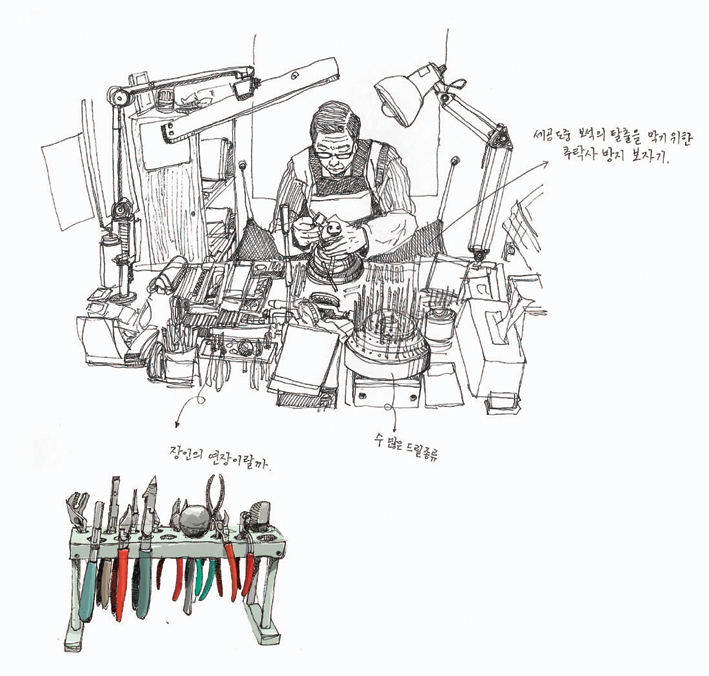 세공도중 보석의 탈출을 막기 위한
추락사 방지 보자기.
수 많은 드릴종류
장인의 연장이랄까.